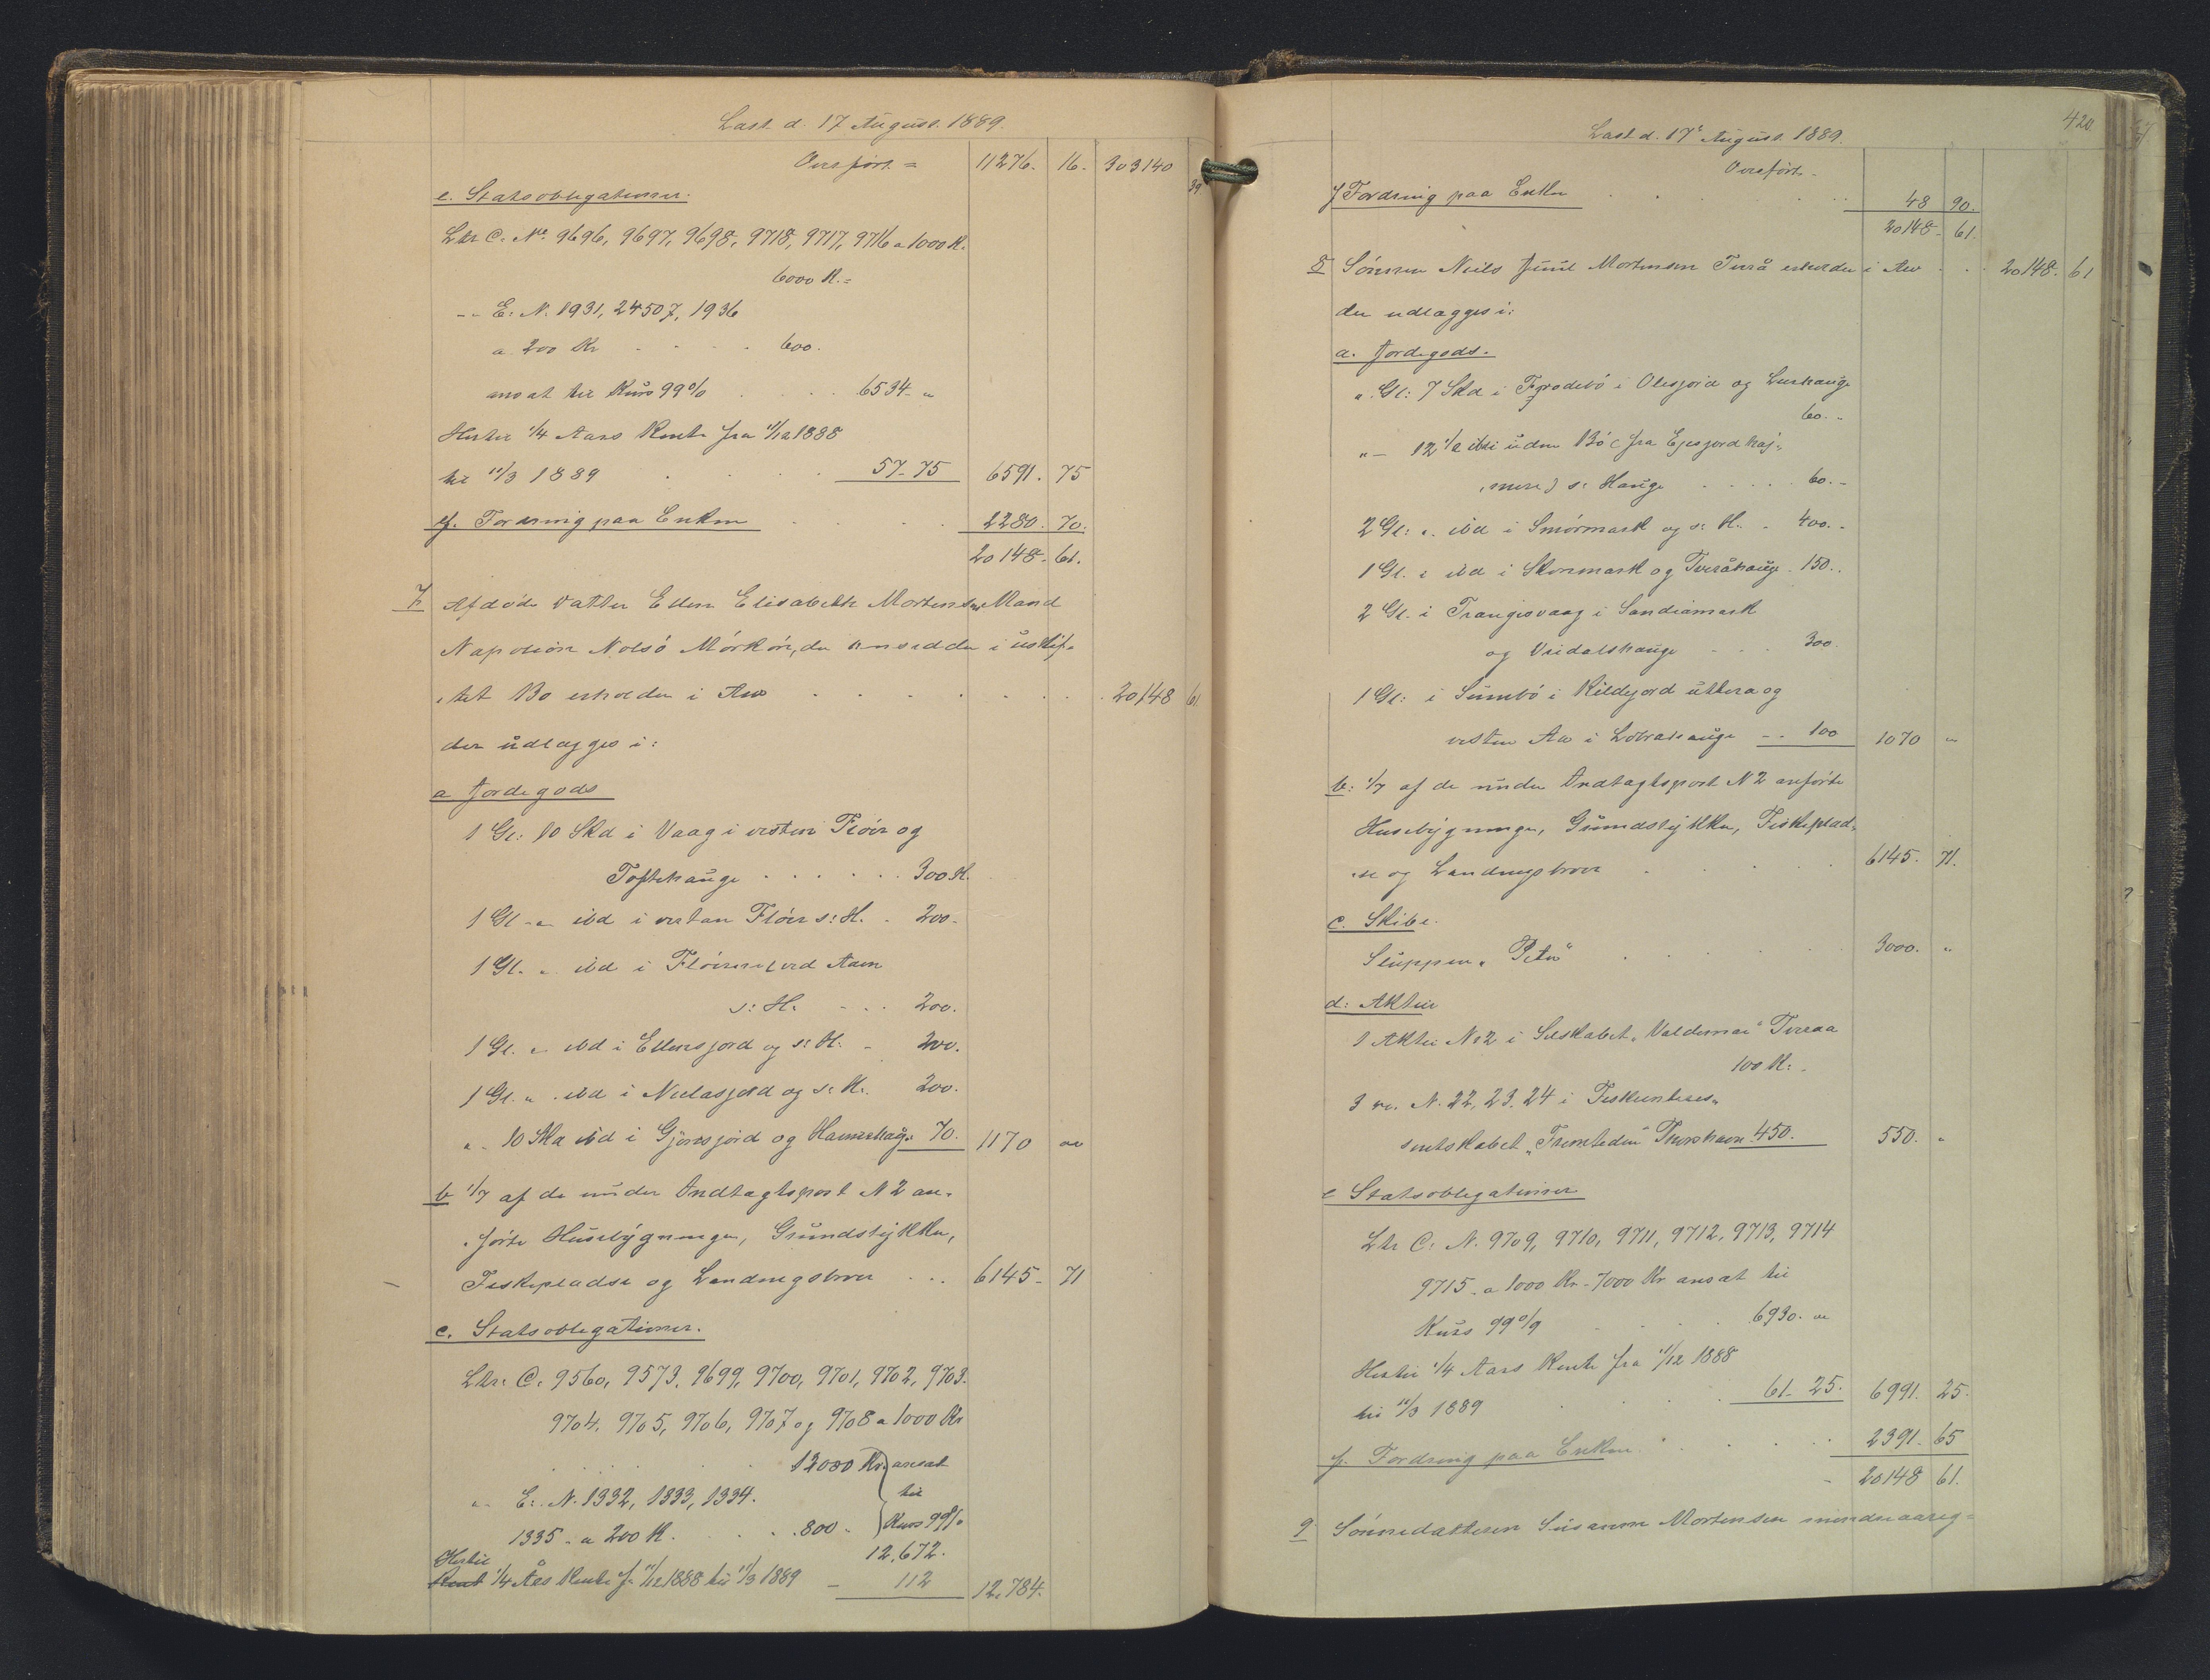 Læst d. 17 August. 1889.
Overført = 11276. 16. 303140 39
e. Statsobligationer.
Ltr C. No. 9696, 9697, 9698, 9718, 9717, 9716 a 1000 K.
6000 K.=
-"- E. N. 1931, 24507, 1936
a 200 Kr . . . . 600.
ansat til Kurs 99% . . . . 6534 "
Hertil 1/4 Aars Rente fra 11/12 1888
til 11/3 1889 . . . 57-75 6591. 75
f. Fordring paa Enken . . . . 2280. 70.
20148. 61.
7. Afdøde Datter Ellen Elisabeth Mortensens Mand
Napoleon Nolsø Mørkøre, der ansidder i uskif-
tet Bo erholder i Arv . . . . . 20,148 61
der udlægges i:
a Jordegods
1 Gl: 10 Skd i Vaag i vestan Fløir og
Toftehauge . . . . . . 300 K.
1 Gl -"- ibd i vestan Fløir s: H. . 200.
1 Gl. " ibd i
s: H. . . . 200.
1 Gl. " ibd i Ellensjord og s: H. - 200.
1 Gl. " ibd i Nielasjord og s: H. 200.
". 10 Skd ibd i Gjørsjord og 70. 1170 "
b 1/7 af de under Indtægtspost N 2 an-
førte Husebygninger, Grundstykker,
Fiskepladse og Landingsbroer . . . 6145- 71
c. Statsobligationer.
Ltr. C. 9560, 9573, 9699, 9700, 9701, 9702, 9703.
9704, 9705, 9706, 9707 og 9708 a 1000 Kr
12000 Kr. ansat
"- E. N. 1332, 1333, 1334. til
1335 - a 200 K. . . . 800. Kurs 99%
Hertil 12,672.
Rent 1/4 Års Rente f. 11/12 1888 til 11/3 1889 - 112 12,784.
420.
Læst d. 17' August. 1889.
Overført.
f Fordring paa Enken . . . . . 48 90.
20148. 61.
8 Sønnen Niels Juul Mortensen Tverå erholder i Arv . . 20148. 61
der udlægges i:
a. Jordegods.
". Gl: 7 Skd i Frodebø i Olesjord og Lushauge
60. "
" - 12 1/2 ibd uden Bø (fra Ejesjord
mere) s: Hauge . . . . . 60.-
2 Gl: ". ibd i Smørmark og s: H. . 400.-
1 Gl. " ibd i Skovmark og Tveråhauge 150..
2 Gl. i Trangisvaag i Sandiamark
og . . . 300.
1 Gl: i Sumbø i Kildejord uttera og
vestan Aa i -.. 100 1070 "
b: 1/7 af de under Indtægtspost N 2 anførte
Husebygninger, Grundstykker, Fiskeplad-
se og Landingsbroer . . . . 6145. 71.
c. Skibe.
Sluppen "Peter" . . . . 3000. "
d: Aktier
1 Aktie No 2 i Selskabet "Valdemar" Tveraa
100 K: .
3 do. N. 22, 23, 24 i Fiskeinteres-
sentskabet "Fremtiden" Thorshavn 450. 550. "
e Statsobligationer
Ltr C. N. 9709, 9710, 9711, 9712, 9713, 9714
9715 - a 1000 Kr - 7000 Kr ansat til
Kurs 99% . . . . 6930. "
Hertil 1/4 Aars Rente fra 11/12 1888
til 11/3 1889 . . . . 61- 25. 6991. 25.
f. Fordring paa Enken . . . . . 2391. 65
- 20148 61.
9 Sønnedatteren Susanne Mortensen mindreaarig-